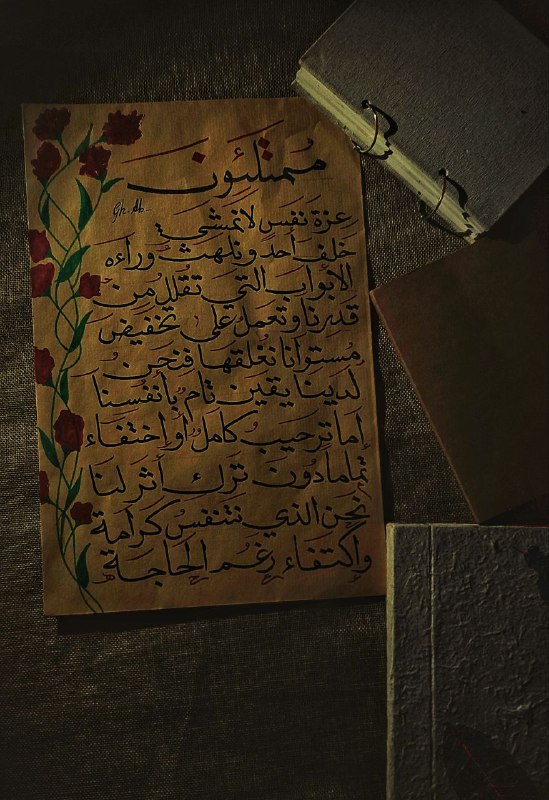 ممتلئون
Gh. Ah.
عزة نفس لا تمشي
خلف أحد و تلهث وراءه
الأبواب التي تقلل من
قدرنا و تعمل على تخفيض
مستوانا نغلقها فنحن
لدينا يقين تام بأنفسنا
إما ترحيب كامل أو إختفاء
تماما دون ترك أثر لنا
نحن الذي نتنفس كرامة
وإكتفاء رغم الحاجة